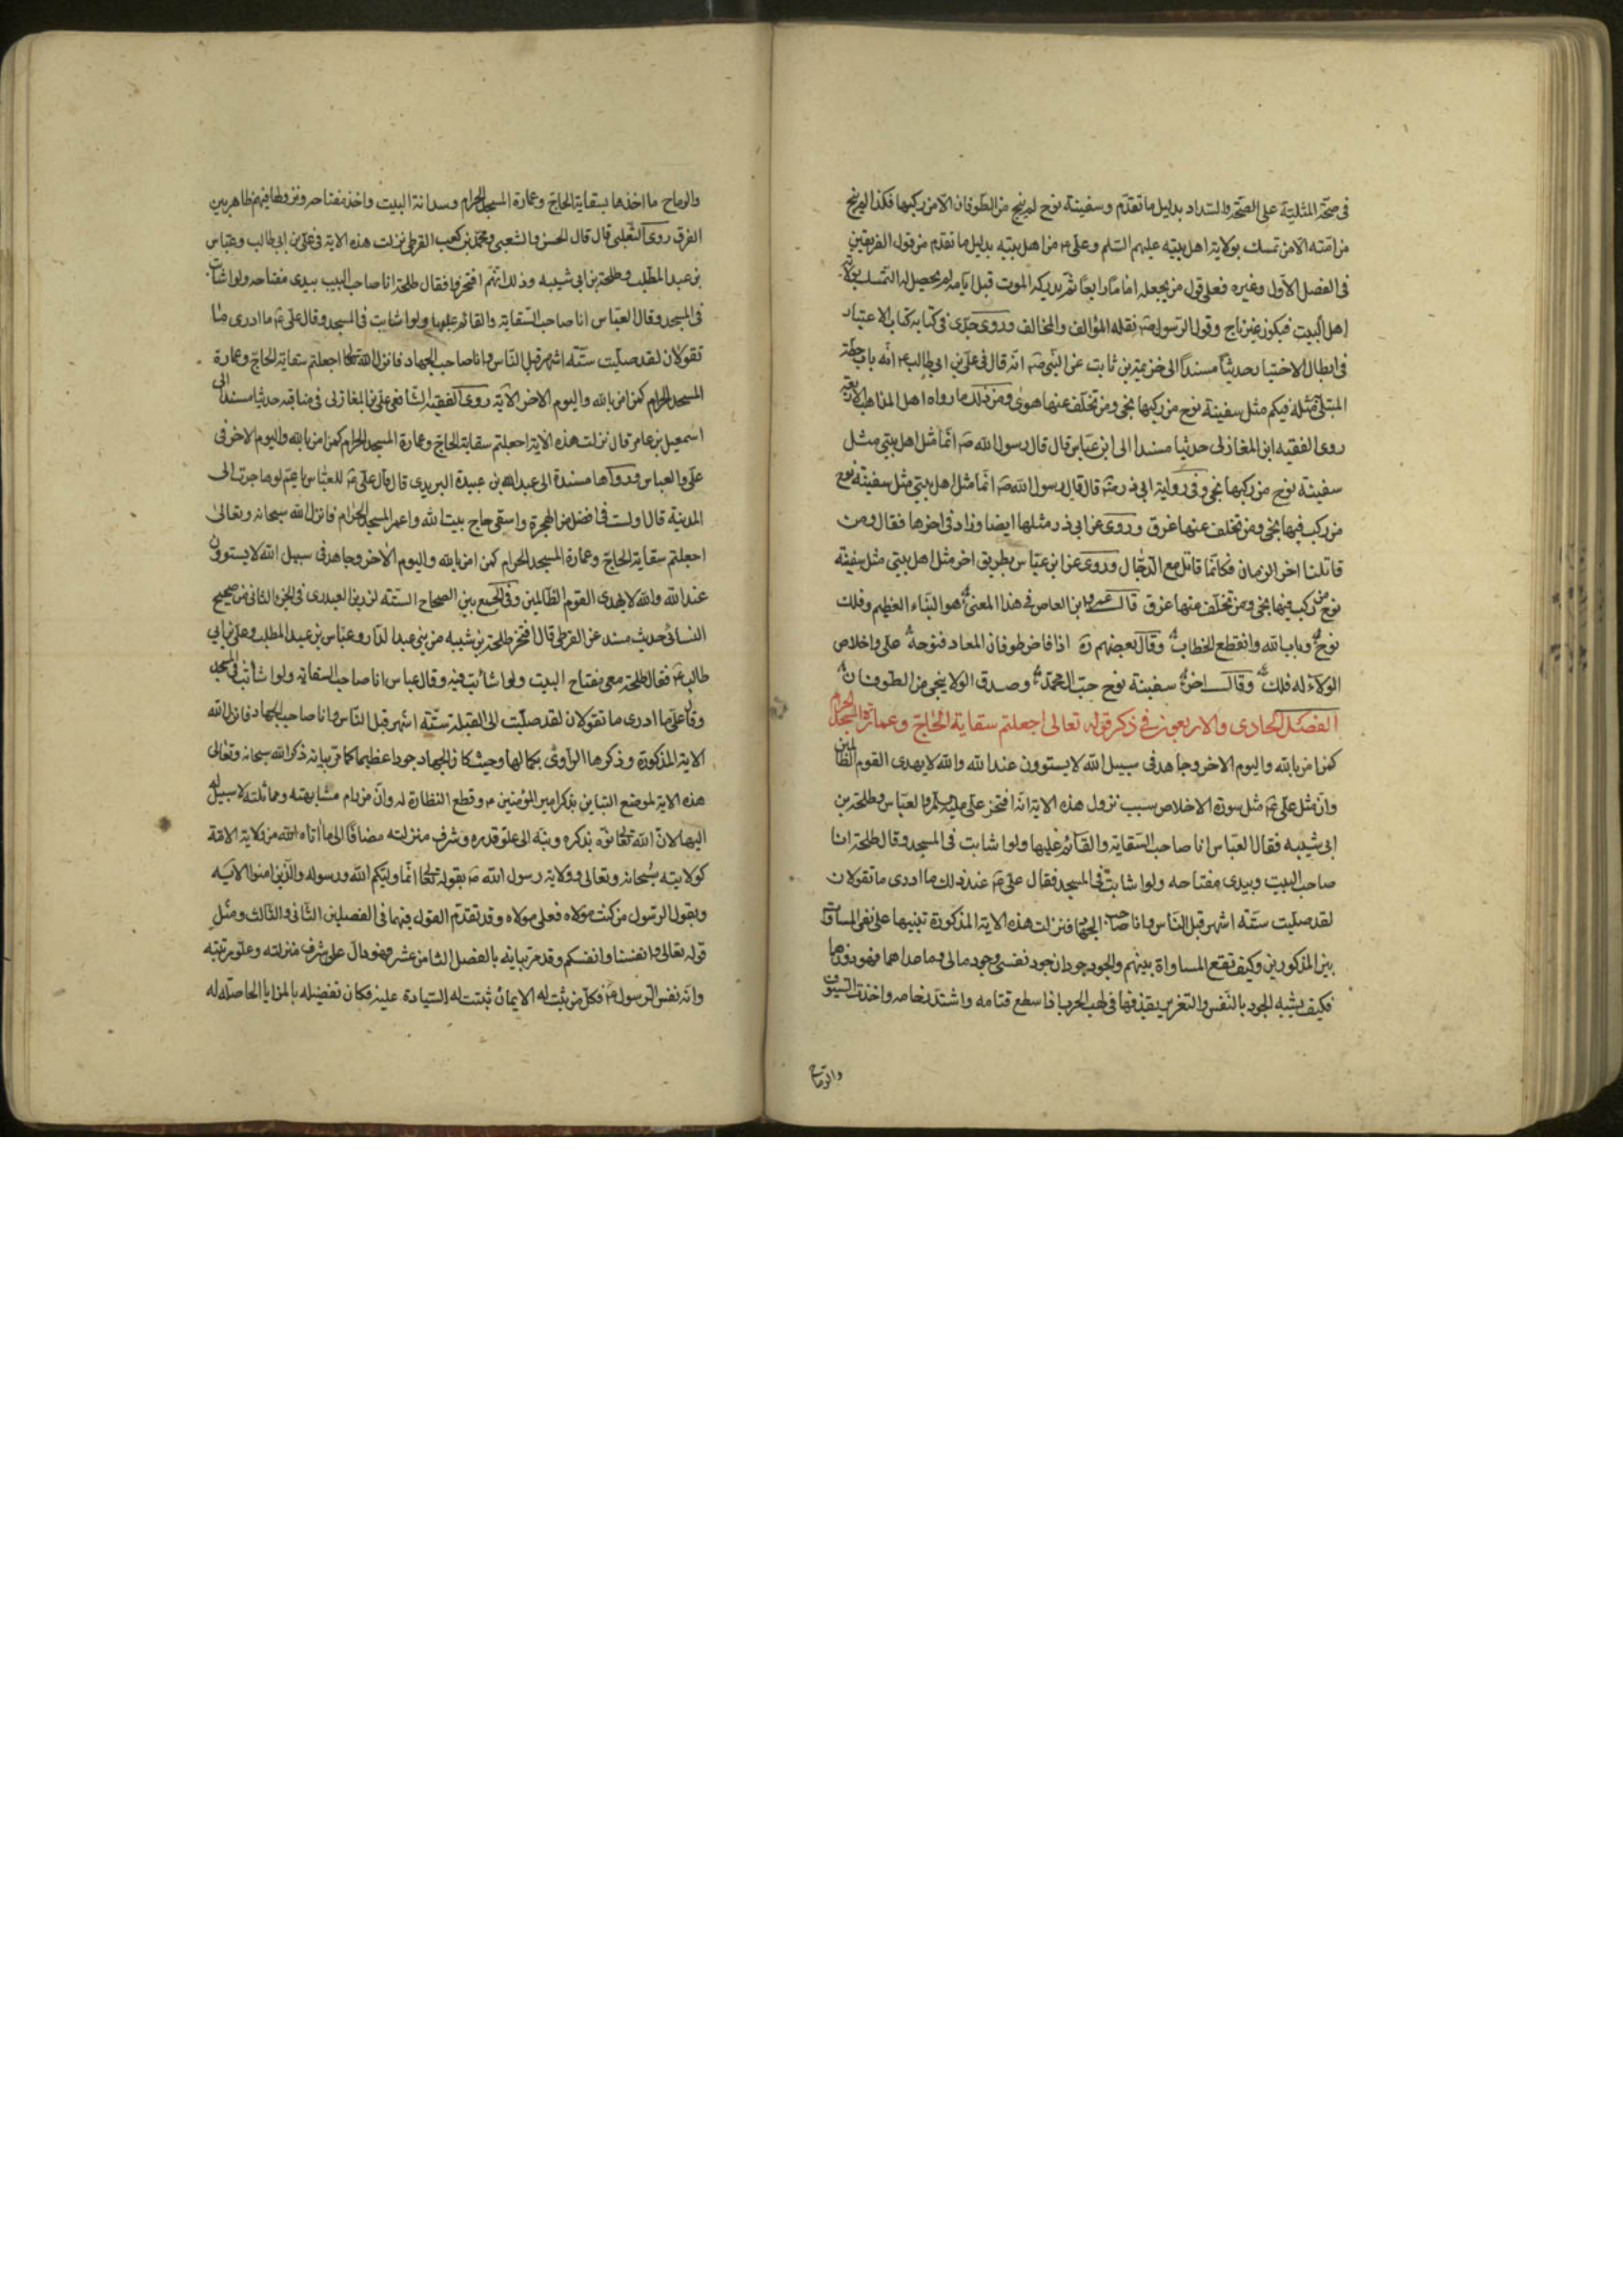 فى صحّة المثلية على الصحّة والسّداد بدليل ما تقدّم وسفينة نوح لم ينج من الطوفان الا من ركبها فكذا لم ينج
من امّته الا من تمسك بولاية اهل بيته عليهم السّلم وعلى من اهل بيته بدليل ما تقدم من قول الفريقين
فى الفصل الاول وغيره فعلى قول من يجعله اماما رابعا ثم يدركه الموت قبل ايامه لم يحصل له التمسك بولاية
اهل البيت فيكون غير ناج وقول الرسول نقله المؤالف والمخالف وروى جدّى فى كتابه كتاب الاعتبار
فى ابطال الاختيار حديثا مسندا الى خزيمة بن ثابت عن النبى انّه قال فى على بن ابى طالب انّه باب حطّة
المبتلى مثله فيكم مثل سفينة نوح من ركبها نجى ومن تخلّف عنها هوى ومن ذلك ما رواه اهل المذاهب الاربعة
روى الفقيه ابن المغازلى حديثا مسندا الى ابن عبّاس قال قال رسول الله ص انّما مثل اهل بيتى مثل
سفينة نوح من ركبها نجى وفى رواية ابى ذر قال قال رسول الله ص انّما مثل اهل بيتى مثل سفينة نوح
من ركب فيها نجى ومن تخلف عنها غرق وروى عن ابى ذر مثلها ايضا وزاد فى اخرها فقال ومن
قاتلنا اخر الزمان فكانّما قاتل مع الدجّال وروى عن ابن عبّاس بطريق اخر مثل اهل بيتى مثل سفينة
نوح من ركب فيها نجى ومن تخلّف عنها غرق قال عمرو ابن العاص فى هذا المعنى هو النباء العظيم وفلك
نوح وباب الله وانقطع الخطاب وقال بعضهم اذا فاض طوفان المعاد فنوحه على واخلاص
الولاء له فلك وقال اخر سفينة نوح حبّ ال محمّد وصدق الولا ينجى من الطوفان
الفصل الحادى والاربعون فى ذكر قوله تعالى اجعلتم سقاية الحاج وعمارة المسجد الحرام
كمن امن بالله واليوم الاخر وجاهد فى سبيل الله لا يستوون عند الله والله لا يهدى القوم الظالمين
وانّ مثل على مثل سورة الاخلاص سبب نزول هذه الاية انّه افتخر على والعبّاس وطلحة بن
ابى شيبه فقال العبّاس انا صاحب السّقاية والقائم عليها ولو اشا بت فى المسجد وقال طلحة انا
صاحب البيت وبيدى مفتاحه ولو اشا بتّ فى المسجد فقال على عند ذلك ما ادرى ما تقولان
لقد صلّيت ستّة اشهر قبل النّاس وانا صاحب الجهاد فنزلت هذه الاية المذكورة تنبيها على نفى المساوات
بين المذكورين وكيف تقع المساواة بينهم والجود جودان جود نفسى وجود مالى وما عداهما فهو دونهما
فكيف يشبه الجود بالنّفس والتغرير بقذفها فى لهب الحرب اذا سطع قتامه واشتدّ واخذت السّيوف
والرماح
والرماح ماخذها بسقاية الحاجّ وعمارة المسجد الحرام وسدانة البيت واخذ مفتاحه
الفرق روى الثّعلبى قال قال الحسن والشعبى ومحمّد بن كعب القرظى نزلت هذه الاية فى على بن ابى طالب وعبّاس
بن عبد المطّلب وطلحة بن ابى شيبه وذلك انّهم افتخروا فقال طلحة انا صاحب البيت بيدى مفتاحه ولو اشا بت
فى المسجد وقال العبّاس انا صاحب السّقاية والقائم عليها ولو اشا بت فى المسجد وقال على ما ادرى ما
تقولان لقد صلّيت ستّة اشهر قبل النّاس وانا صاحب الجهاد فانزل الله تعالى اجعلتم سقاية الحاجّ وعمارة
المسجد الحرام كمن امن بالله واليوم الاخر الآية روى الفقيه الشافعى على بن المغازلى فى مناقبه حديثا مسندا الى
اسمعيل بن عامر قال نزلت هذه الآية اجعلتم سقاية الحاجّ وعمارة المسجد الحرام كمن امن بالله واليوم الاخر فى
على والعباس ورواها مسندة الى عبد الله بن عبيدة البريدى قال قال على للعبّاس يا عمّ لو هاجرت الى
المدينة قال اولست فى افضل من الهجرة واسقى حاج بيت الله واعمر المسجد الحرام فانزل الله سبحانه وتعالى
اجعلتم سقاية الحاجّ وعمارة المسجد الحرام كمن امن بالله واليوم الاخر وجاهد فى سبيل الله لا يستوون
عند الله والله لا يهدى القوم الظالمين وفى الجمع بين الصحاح الستّة لرزين العبدرى فى الجزء الثانى من صحيح
النسائى حديث مسند عن القرظى قال افتخر طلحة بن شيبه من بنى عبد الدّار وعبّاس بن عبد المطلب وعلى بن ابى
طالب فقال طلحة معى مفتاح البيت ولو اشا بت فيه وقال عباس انا صاحب السقاية ولو اشا بتّ فى المسجد
وقال على ما ادرى ما تقولان لقد صلّيت الى القبلة ستّة اشهر قبل النّاس وانا صاحب الجهاد فانزل الله
الاية المذكورة وذكرها الراوى بكمالها وحيث كان الجهاد جودا عظيما كما مرّ بيانه ذكر الله سبحانه وتعالى
هذه الاية لموضع التباين بذكر امير المؤمنين وقطع النظارة له وانّ من رام مشابهته ومماثلته لا سبيل له
اليها لانّ الله تعالى نوّه بذكره ونبّه الى علوّ قدره وشرف منزلته مضافا الى ما اتاه الله من ولاية الامّة
كولايته سبحانه وتعالى وولاية رسول الله ص بقوله تعالى انّما وليّكم الله ورسوله والذين امنوا الايه
وبقول الرسول من كنت مولاه فعلى مولاه وقد تقدّم القول فيهما فى الفصلين الثّانى والثّالث ومثل
قوله تعالى وانفسنا وانفسكم وقد مرّ بيانه بالفصل الثامن عشر فهو دالّ على شرف منزلته وعلوّ مرتبته
وانّه نفس الرسول فكلّ من ثبت له الايمان ثبتت له السّيادة عليه فكان تفضيله بالمزايا الحاصله له